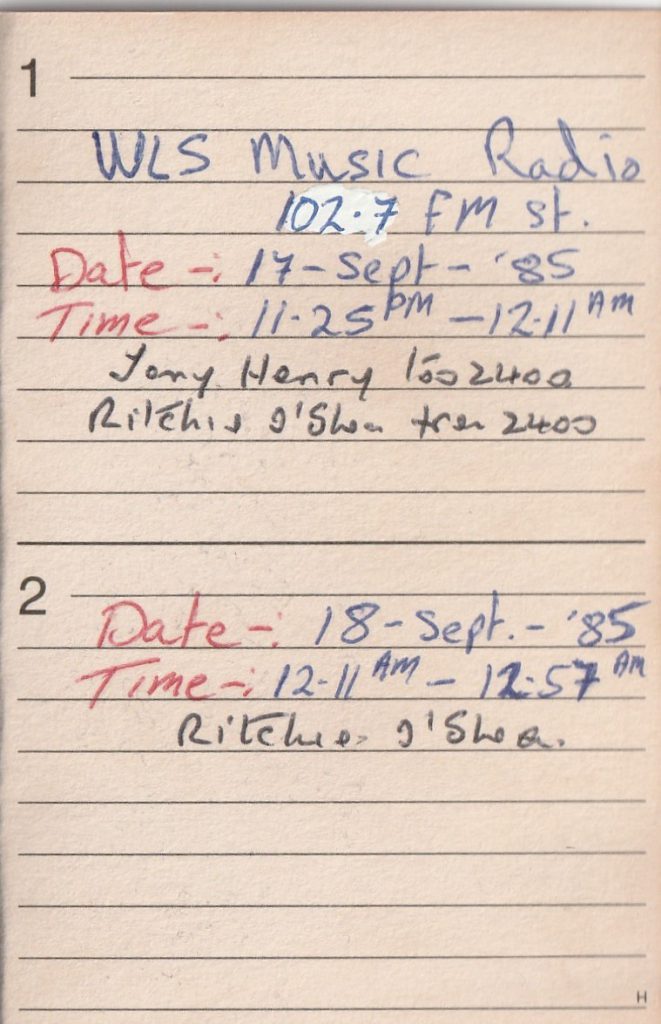 1
WLS Music Radio
102.7 FM St.
Date -: 17 - Sept - '85
Time -: 11.25 PM - 12.11 AM
Tony Henry to 2400
Ritchie O'Shea from 2400
2
Date -: 18 - Sept. - '85
Time -: 12.11 AM - 12.57 AM
Ritchie O'Shea.
H